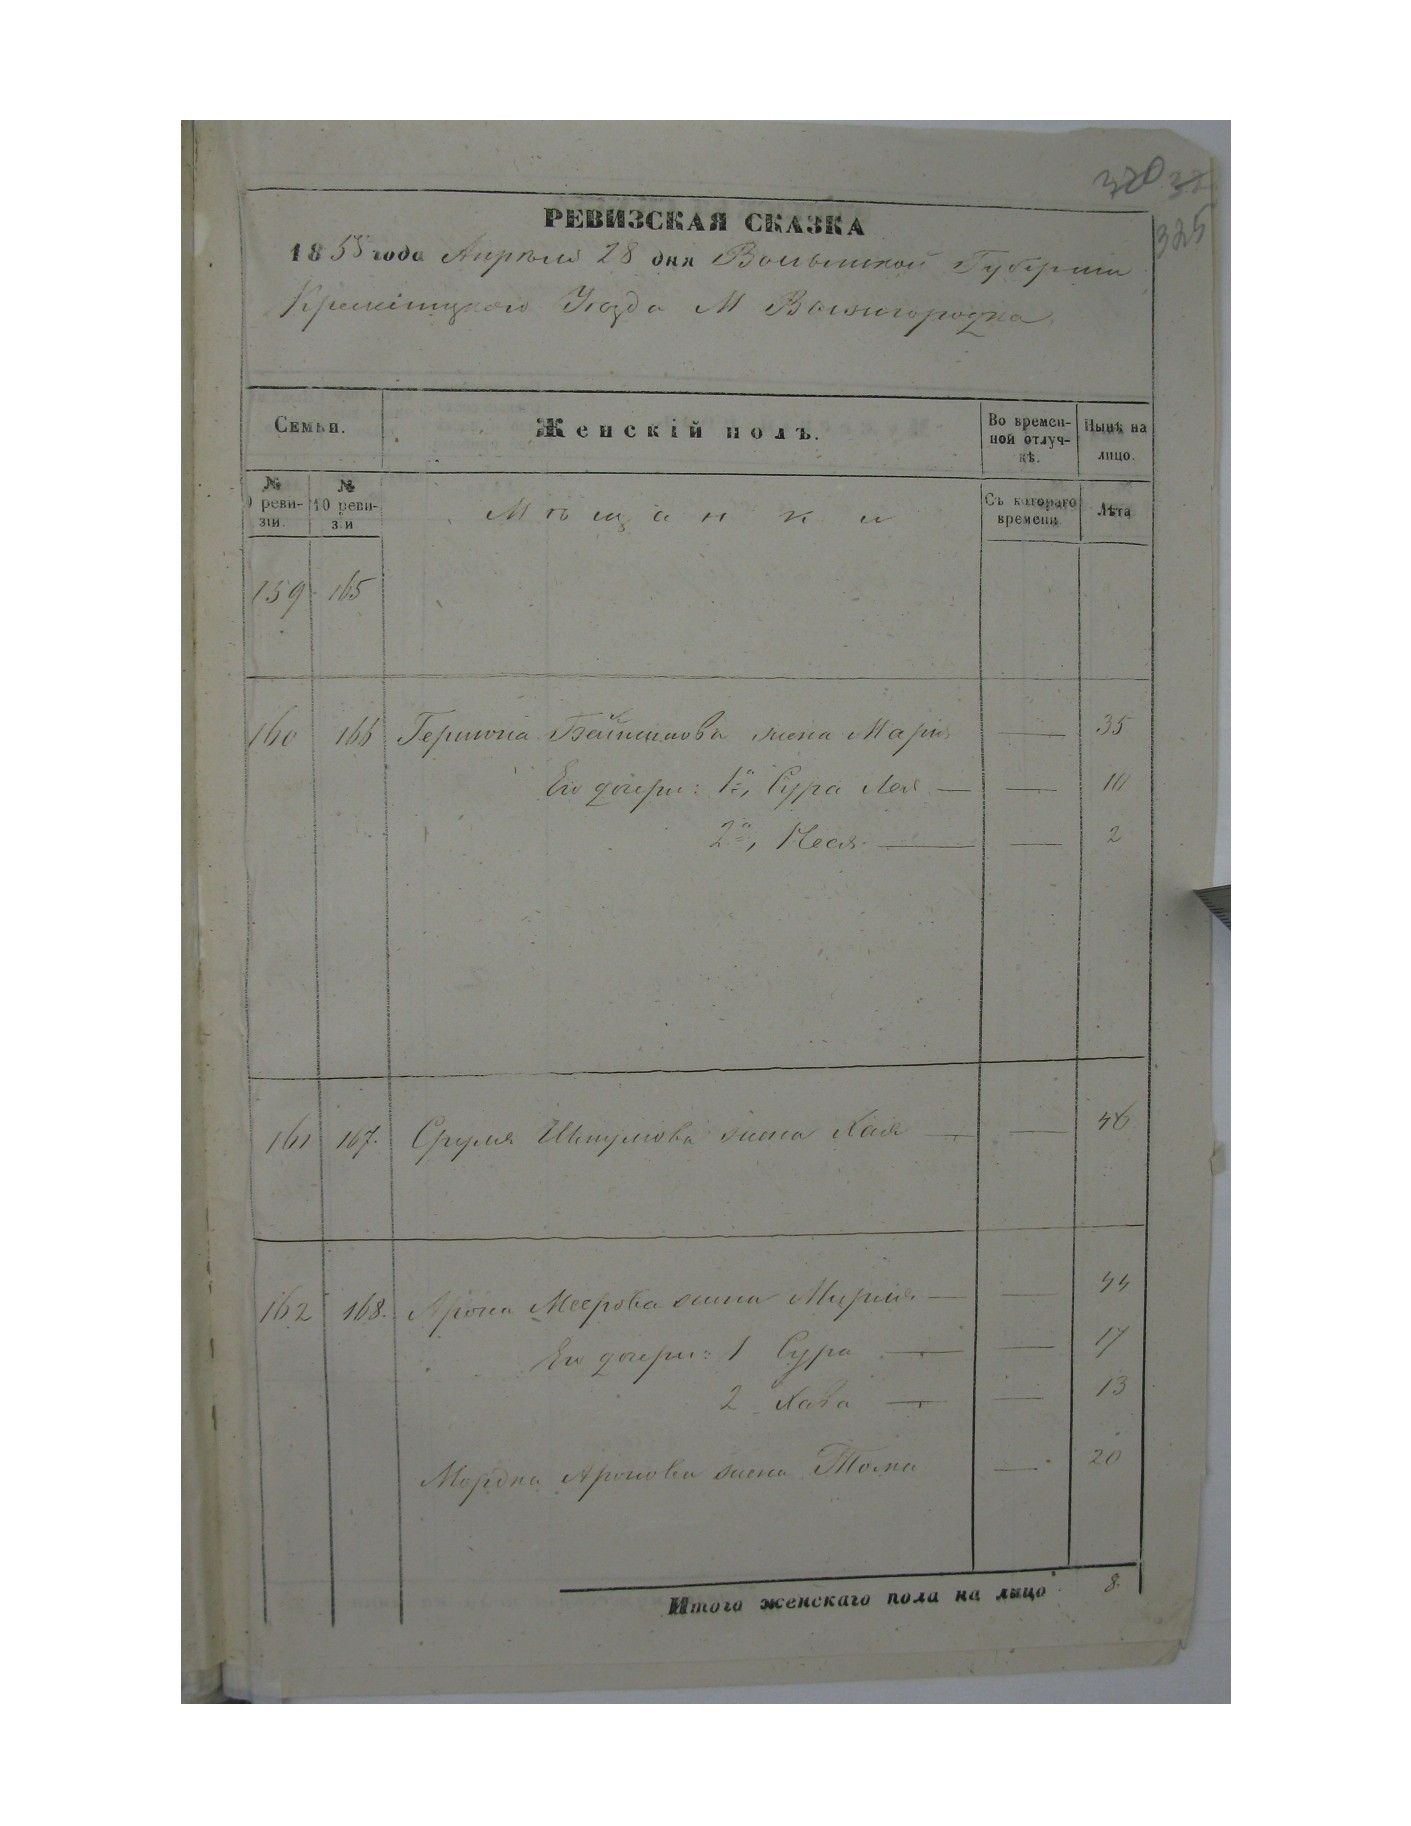 320
325
РЕВИЗСКАЯ СКАЗКА
1858 года Апреля 28 дня Волынской Губернии
Кременецкаго Уезда М Вышгородка
Семьи.
Женскій полъ.
Во времен-
ной отлуч-
кѣ.
Нынѣ на
лицо.
№
реви-
зіи.
№
10 реви-
зіи
Мѣщанки
Съ котораго
времени
Лѣта
159 165
160 166 Гершона жена Мария — 35
Его дочери: 1я, Сура Лея — — 10
2я, Неся — — 2
161 167. Сруля жена Хая — — 46
162 168. Арона Меерова жена Мирля — — 44
Его дочери: 1 Сура — — 17
2 Хава — — 13
Мордка Аронова жена Тома — 20
Итого женскаго пола на лицо 8